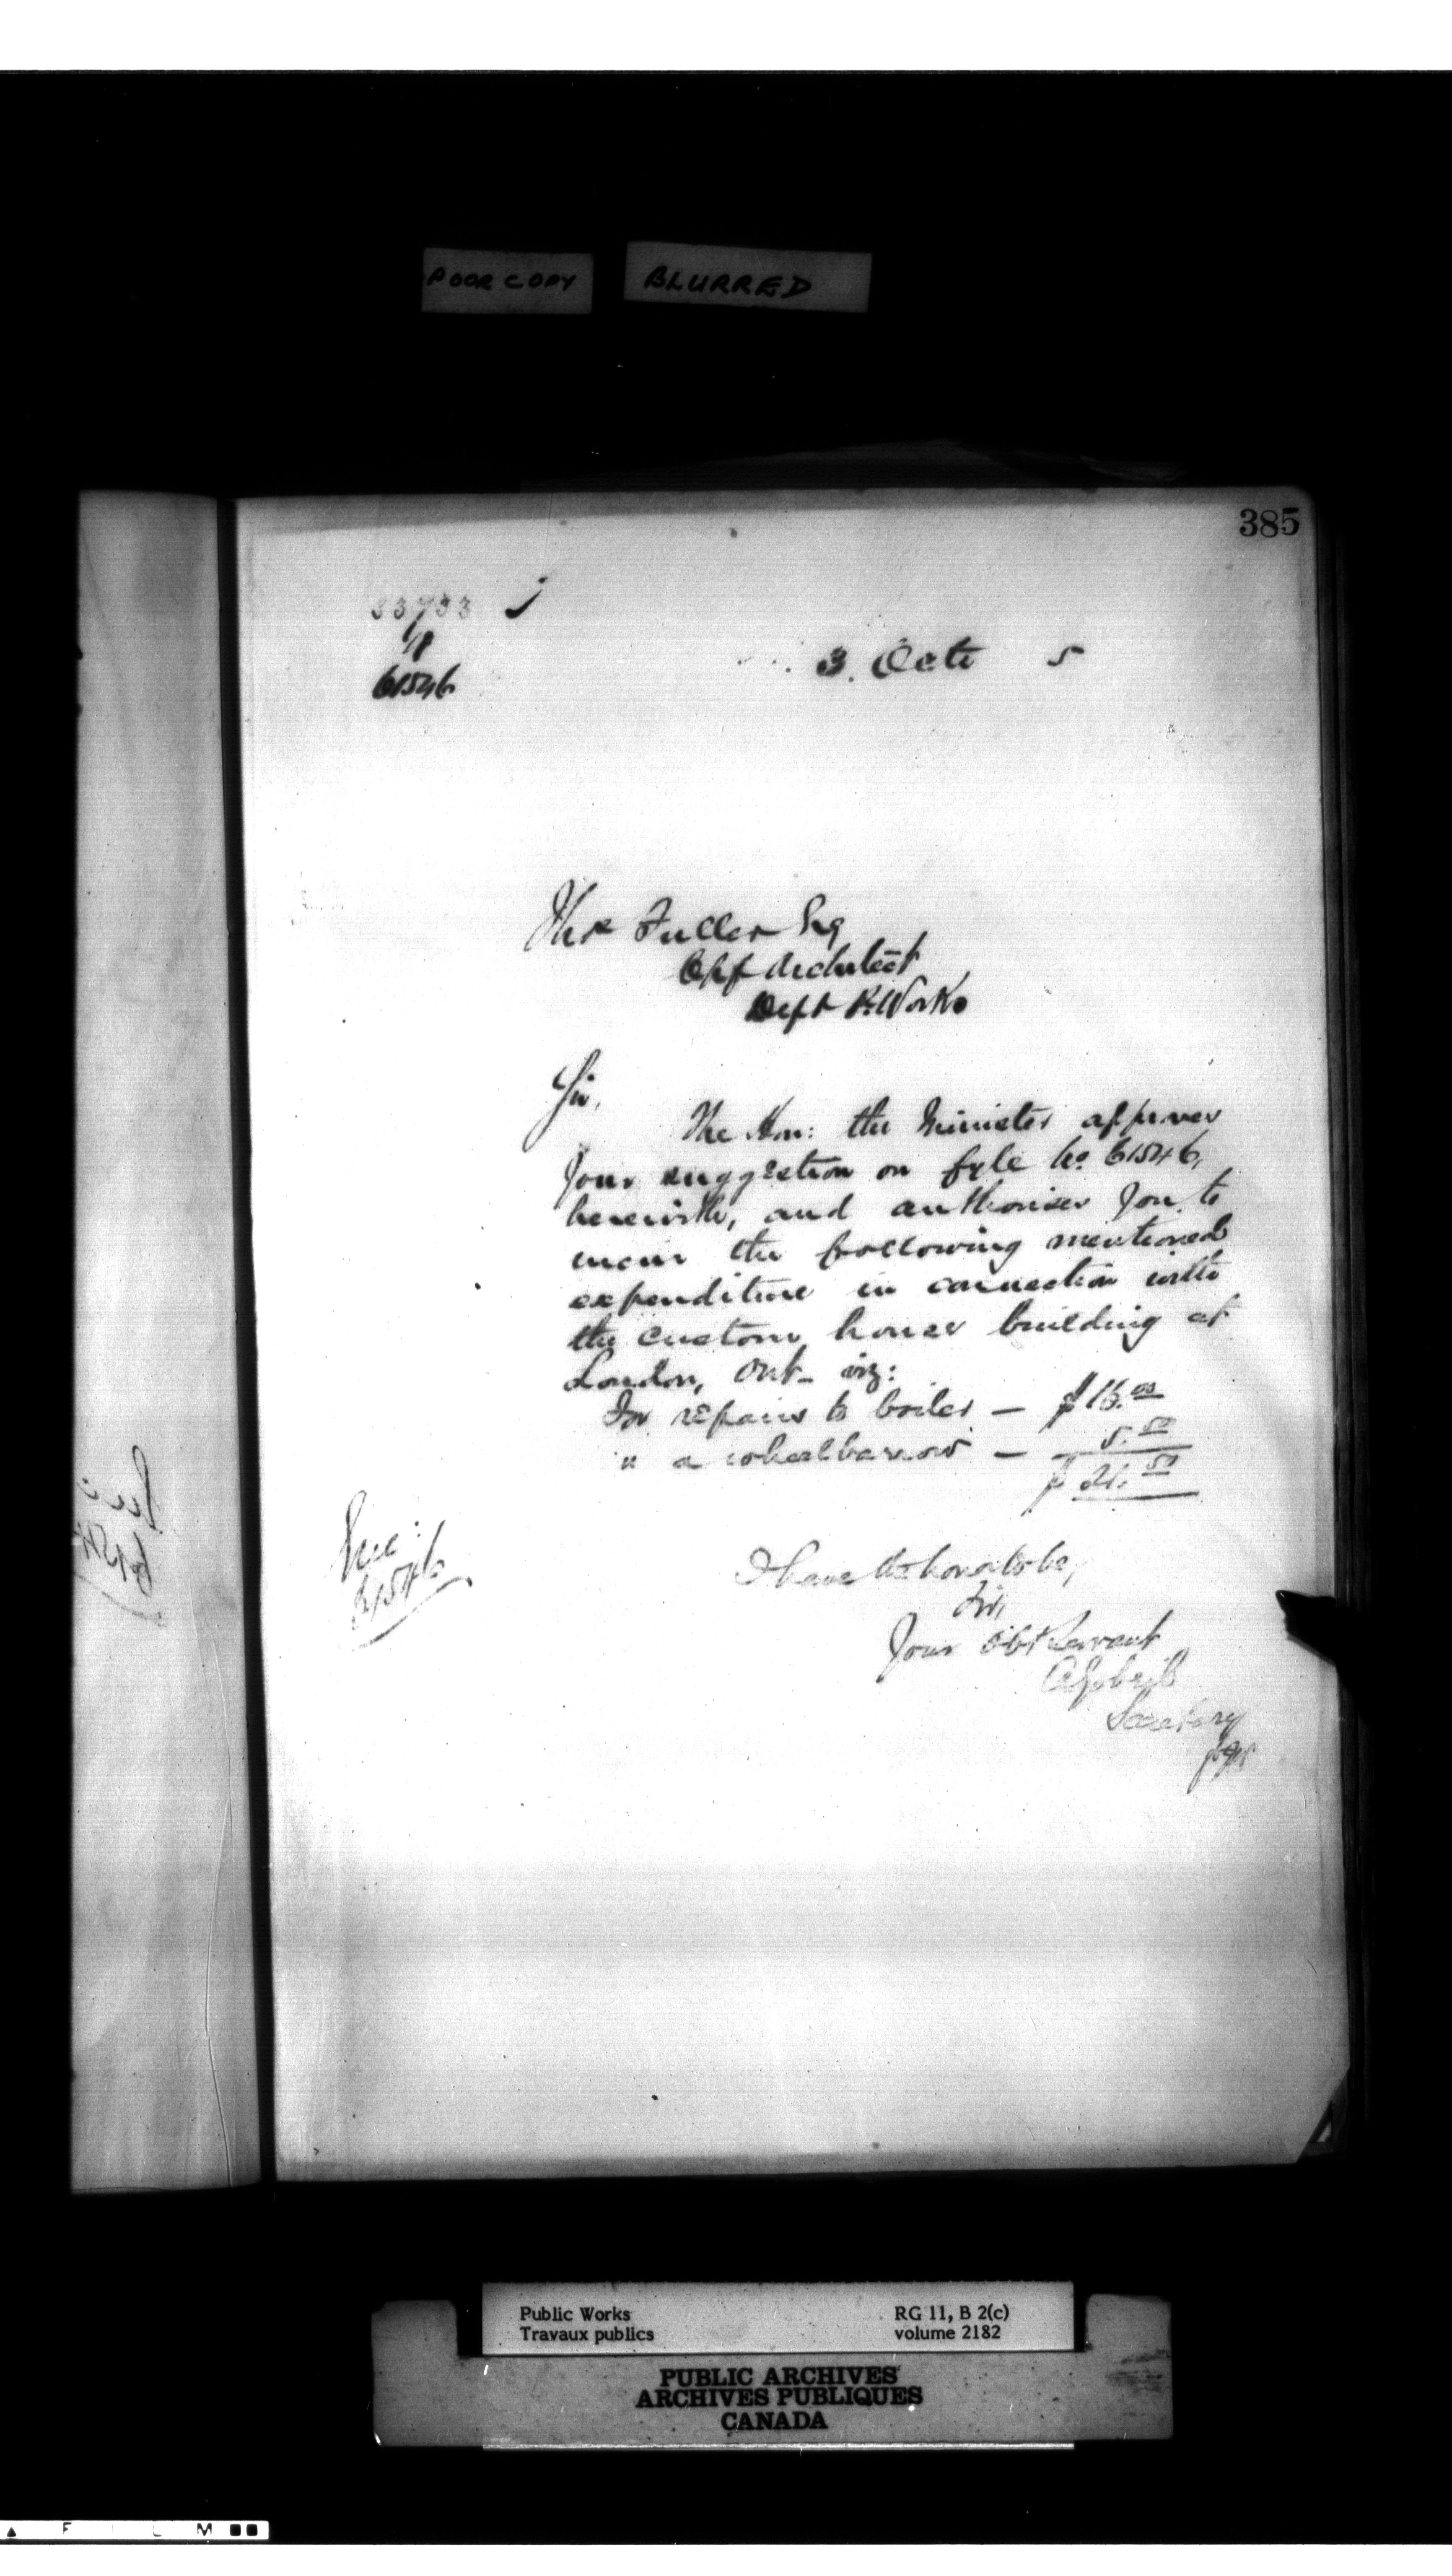 POOR COPY BLURRED
385
33733
61546
3. Octr 5
Thos Fuller Esq
Chf Architect
Dept P. Works
Sir,
The Hon: the Minister approves
your suggestion on fyle No. 61546,
herewith, and authorises you to
incur the following mentioned
expenditure in connection with
the custom house building at
London, Ont. viz:
For repairs to boiler — $16.00
" a wheelbarrow — 5.50
$ 21.50
Enc:
61546
I have the honor to be,
Sir,
Your obt Servant
A Gobeil
Secretary
Public Works RG 11, B 2(c)
Travaux publics volume 2182
PUBLIC ARCHIVES
ARCHIVES PUBLIQUES
CANADA
F I L M